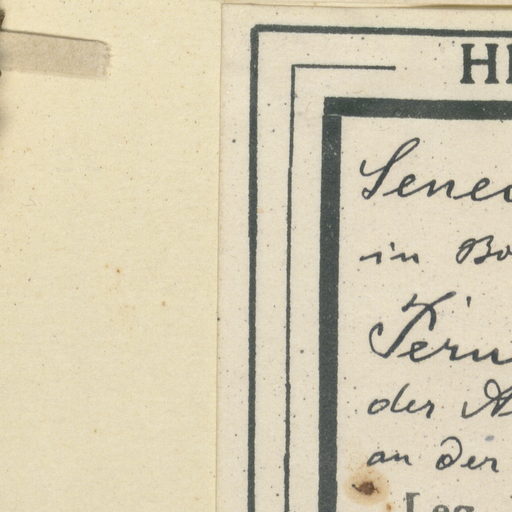 HE
Senec
in Bo
Fernr
der A
an der
Leg.